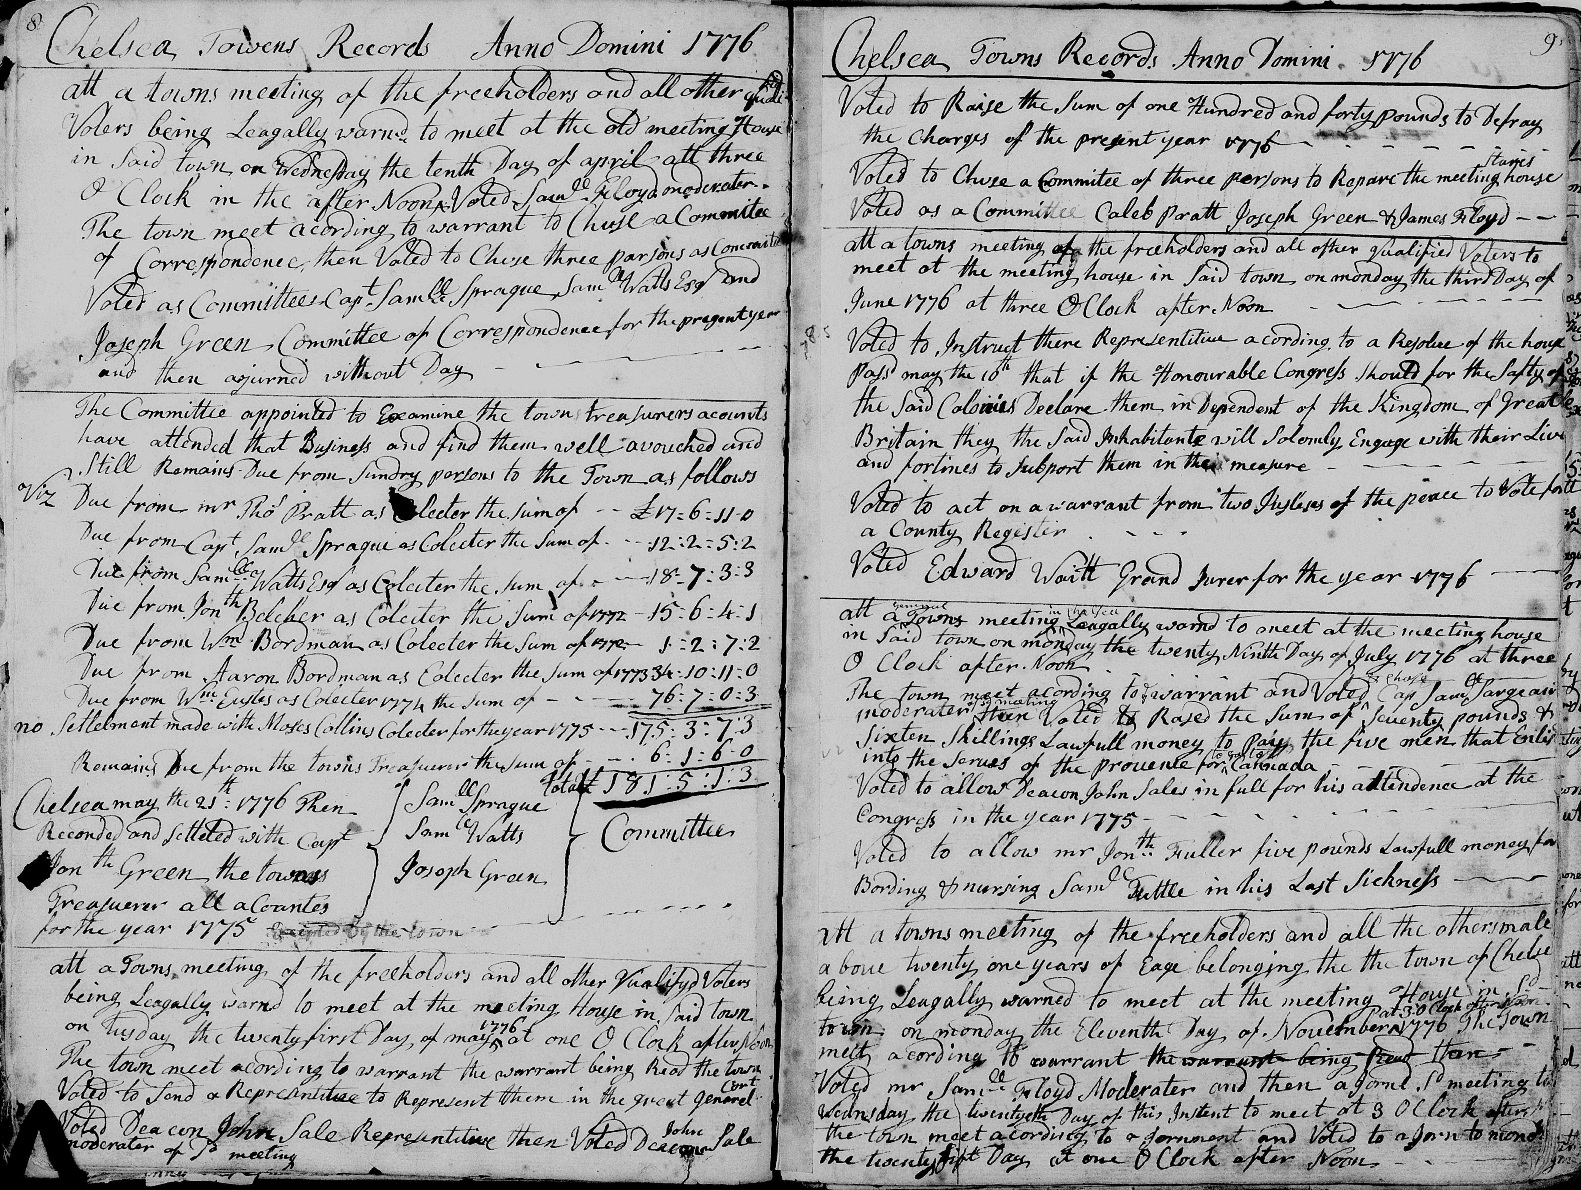 8
Chelsea Towens Records Anno Domini 1776
att a towns meeting of the freeholders and all other
Voters being Leagally warnd to meet at the old meeting House
in Said town on Wednesday the tenth Day of april att three
O Clock in the after Noon Voted Samll Floyd moderater
The town meet acording to warrant to Chuse a Commitee
of Correspondence, then Voted to Chuse three parsons as Committee
Voted as Committee Capt Samll Sprague Samll Watts Esqr and
Joseph Green Committee of Correspondence for the present year
and then ajurned without Day
The Committee appointed to Examine the towns treasurers acounts
have attended that Business and find them well avouched and
Still Remains Due from Sundry persons to the Town as follows
Viz Due from mr Thos Pratt as Colecter the Sum of -- £17=6=11-0
Due from Capt Samll Sprague as Colecter the Sum of -- 12:2=5:2
Due from Samll Watts Esqr as Colecter the Sum of -- 18-7:3:3
Due from Jonth Belcher as Colecter the Sum of 1772 - 15=6=4-1
Due from Wm Bordman as Colecter the Sum of 1772 - 1:2:7:2
Due from Aaron Bordman as Colecter the Sum of 1773 34-10:11-0
Due from Wm Eustes as Colecter 1774 the Sum of - 76-7:0:3
no Settlement made with Moses Collins Colecter for the year 1775 --- 175:3:7:3
Remains Due from the towns Treasuerer the Sum of - 6:1:6:0
Total £181:5:1:3
Chelsea may the 21th: 1776 Then
Reconded and Setteled with Capt
Jonth Green the towns
Treasuerer all acountes
for the year 1775 Excepted by the town
Samll Sprague
Samll Watts
Joseph Green
Committee
att a Towns meeting of the freeholders and all other Qualifyd Voters
being Leagally warnd to meet at the meeting House in Said town
on tusday the twenty first Day of may 1776 at one O Clock after Noon
The town meet acording to warrant the warrant being Read the town
Voted to Send a Representitive to Represent them in the great general Cort
Voted Deacon John Sale Representitive then Voted Deacon John Sale
moderater of Sd meeting
9
Chelsea Towns Records Anno Domini 1776
Voted to Raise the Sum of one Hundred and forty pounds to Defray
the Charges of the present year 1776
Voted to Chuse a Commitee of three persons to Repare the meeting house stairs
Voted as a Committee Caleb Pratt Joseph Green & James Floyd
att a towns meeting of the freeholders and all other Qualified Voters to
meet at the meeting house in Said town on monday the third Day of
June 1776 at three O Clock after Noon
Voted to Instruct there Representitive acording to a Resolve of the house
Passd may the 10th that if the Honourable Congress Should for the Safty of
the Said Colonies Declare them in Dependent of the Kingdom of Great
Britain they the Said Inhabitants will Solomly Engage with their Live
and fortines to Subport them in the measure
Voted to act on a warrant from two Justeses of the peace to Vote for
a County Regester
Voted Edward Waitt Grand Jurer for the year 1776
att a general Towns meeting Leagally warnd to meet at the meeting house
in Said town on monday the twenty Ninth Day of July 1776 at three
O Clock after Noon
The town meet acording to warrant and Voted to chuse Capt Samll Sargeant
moderater of Sd meating then Voted to Rased the Sum of Seventy pounds &
Sixten Shillings Lawfull money to Pay the five men that Enlis
into the Serves of the provence for Cannada
Voted to allow Deacon John Sales in full for his attendence at the
Congress in the year 1775
Voted to allow mr Jonth Fuller five pounds Lawfull money for
Bording & nursing Samll Tuttle in his Last Sickness
att a towns meeting of the freeholders and all the others male
above twenty one years of Eage belonging the the town of Chelse
being Leagally warned to meet at the meeting House in Sd
town on monday the Eleventh Day of November 1776 at 3 O Clock after Noon The Town
meet acording to warrant the warrant being Read then
Voted mr Samll Floyd Moderater and then ajornd Sd meeting to
wednsday the twentyeth Day of this Instent to meet at 3 O Clock after
the town meet acording to ajornment and Voted to ajorn to mond
the twenty fift Day at one O Clock after Noon